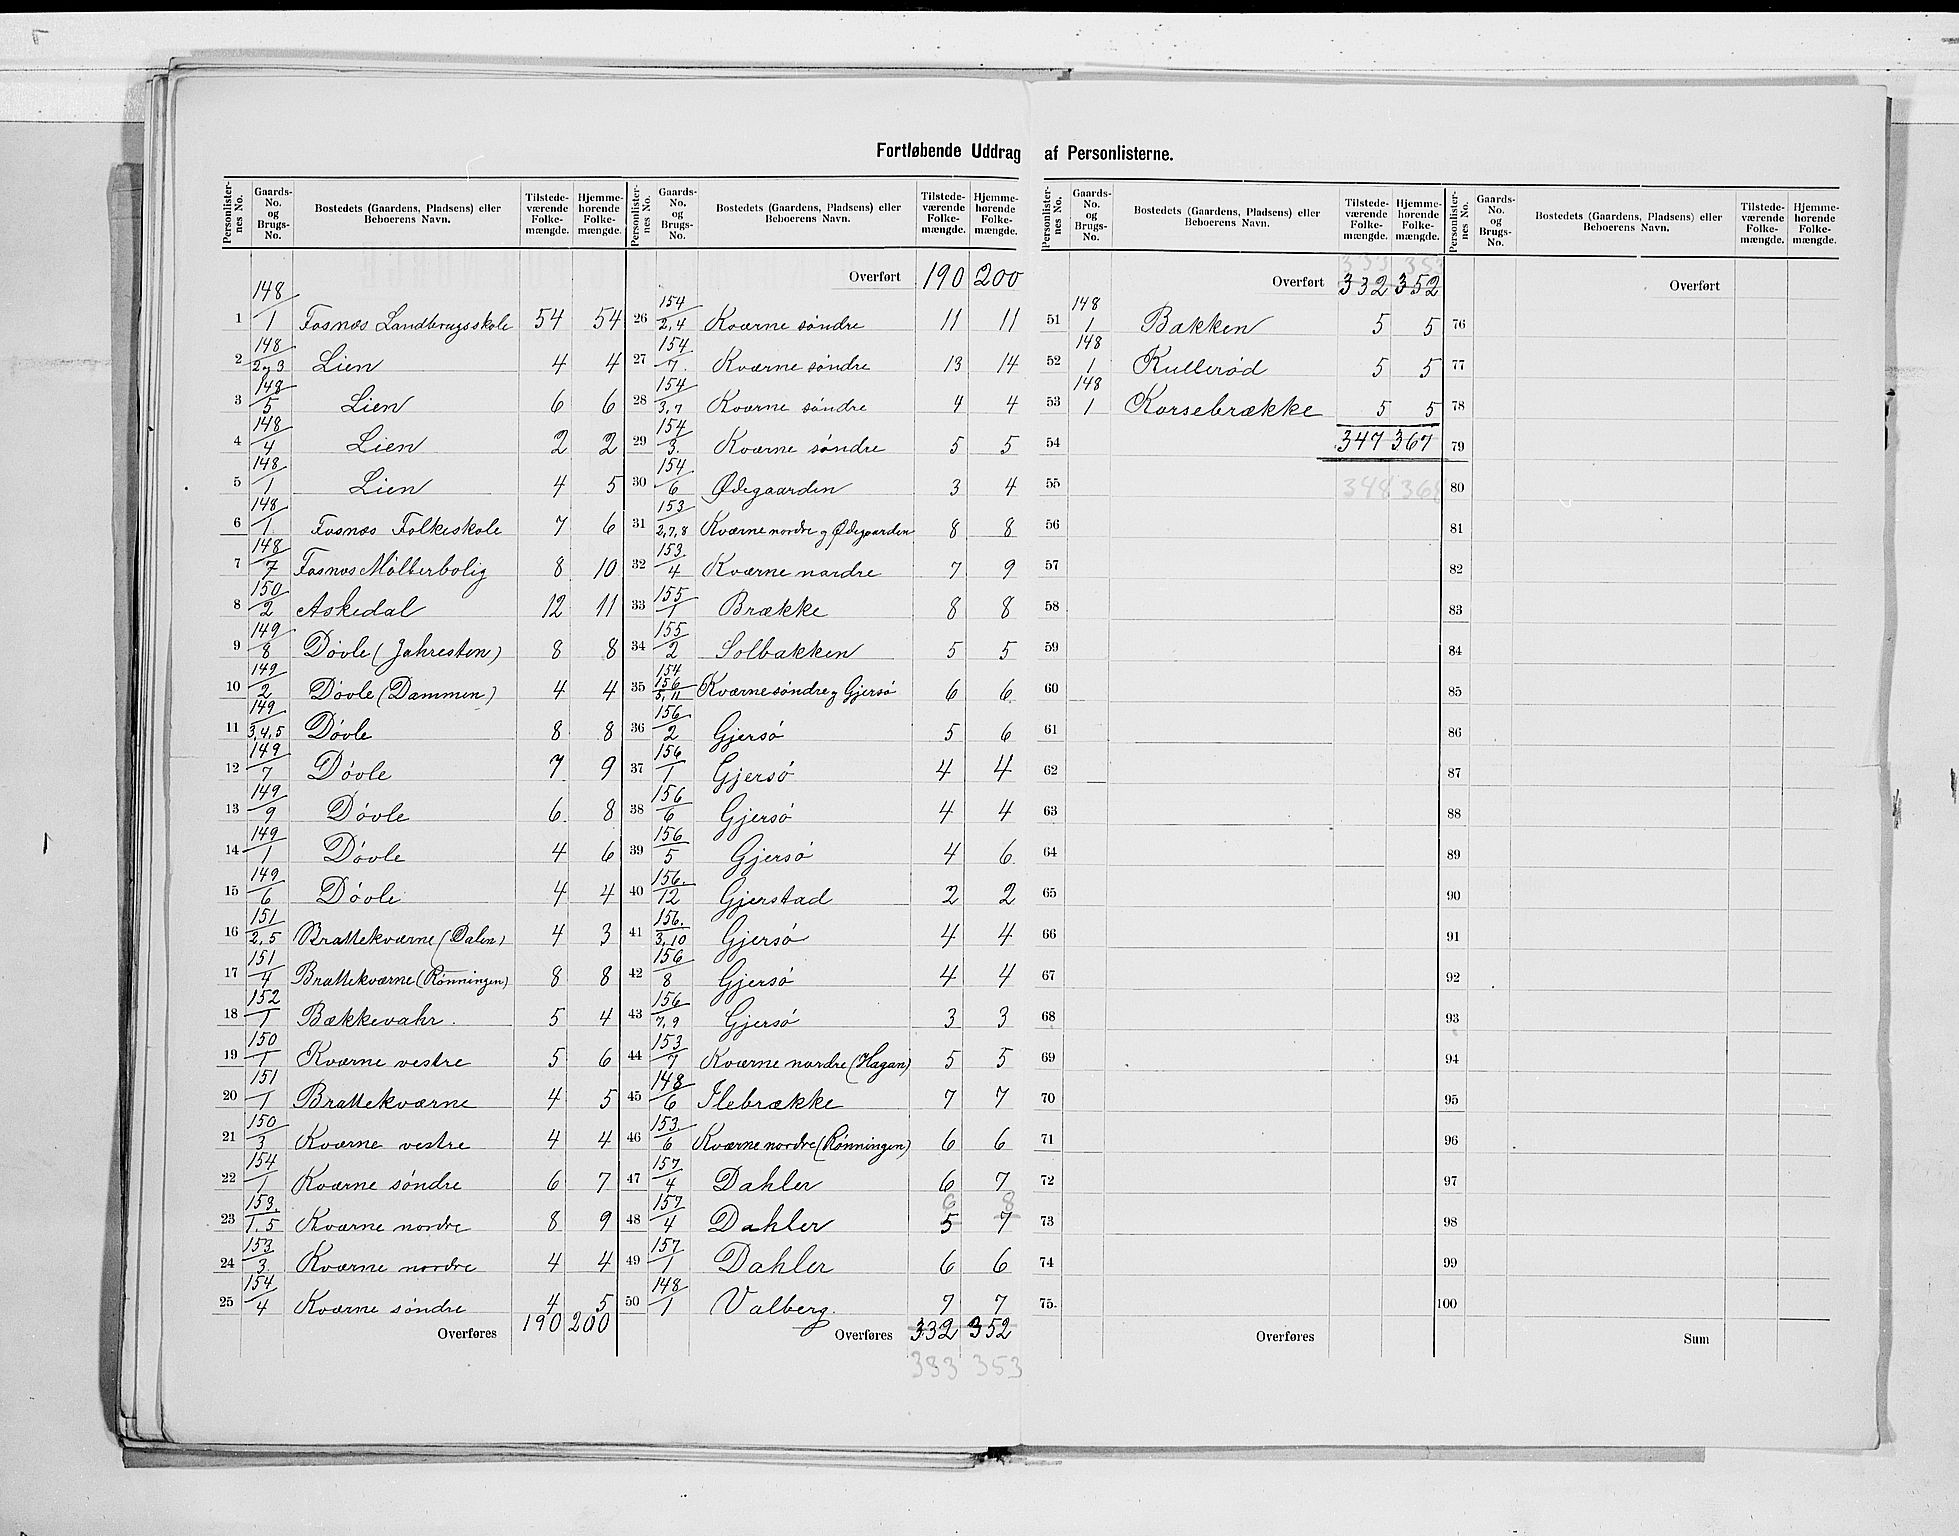 Fortløbende Uddrag af Personlisterne.
Personlisternes No. Gaards-No. og Brugs-No. Bostedets (Gaardens, Pladsens) eller Beboerens Navn. Tilstedeværende Folkemængde. Hjemmehørende Folkemængde.
1 148/1 Fosnæs Landbrugsskole 54 54
2 148/2 og 3 Lien 4 4
3 148/5 Lien 6 6
4 148/4 Lien 2 2
5 148/1 Lien 4 5
6 148/1 Fosnæs Folkeskole 7 6
7 148/7 Fosnæs Mølterbolig 8 10
8 150/2 Askedal 12 11
9 149/8 Døvle (Jahresten) 8 8
10 149/2 Døvle (Dammen) 4 4
11 149/3,4,5 Døvle 8 8
12 149/7 Døvle 7 9
13 149/9 Døvle 6 8
14 149/1 Døvle 4 6
15 149/6 Døvle 4 4
16 151/2,5 Brattekværne (Dalen) 4 3
17 151/4 Brattekværne (Rønningen) 8 8
18 152/1 Bækkevahr. 5 4
19 150/1 Kværne vestre 5 6
20 151/1 Brattekværne 4 5
21 150/3 Kværne vestre 4 4
22 154/1 Kværne søndre 6 7
23 153/1,5 Kværne nordre 8 9
24 153/3 Kværne nordre 4 4
25 154/4 Kværne søndre 4 5
Overføres 190 200
Personlisternes No. Gaards-No. og Brugs-No. Bostedets (Gaardens, Pladsens) eller Beboerens Navn. Tilstedeværende Folkemængde. Hjemmehørende Folkemængde.
Overført 190 200
26 154/2,4 Kværne søndre 11 11
27 154/7 Kværne søndre 13 14
28 154/3,7 Kværne søndre 4 4
29 154/3 Kværne søndre 5 5
30 154/6 Ødegaarden 3 4
31 153/2,7,8 Kværne nordre og Ødegaarden 8 8
32 153/4 Kværne nordre 7 9
33 155/1 Brække 8 8
34 155/2 Solbakken 5 5
35 154 156/5,11 Kværne søndre og Gjersø 6 6
36 156/2 Gjersø 5 6
37 156/1 Gjersø 4 4
38 156/6 Gjersø 4 4
39 156/5 Gjersø 4 6
40 156/12 Gjerstad 2 2
41 156/3,10 Gjersø 4 4
42 156/8 Gjersø 4 4
43 156/7,9 Gjersø 3 3
44 153/7 Kværne nordre (Hagan) 5 5
45 148/6 Ilebrække 7 7
46 153/6 Kværne nordre (Rønningen) 6 6
47 157/4 Dahler 6 7
6 8
48 157/4 Dahler 5 7
49 157/1 Dahler 6 6
50 148/1 Valberg. 7 7
Overføres 332 352
333 353
Personlisternes No. Gaards-No. og Brugs-No. Bostedets (Gaardens, Pladsens) eller Beboerens Navn. Tilstedeværende Folkemængde. Hjemmehørende Folkemængde.
333 353
Overført 332 352
51 148/1 Bakken 5 5
52 148/1 Kullerød 5 5
53 148/1 Korsebrække 5 5
54 347 367
55 348 368
56
57
58
59
60
61
62
63
64
65
66
67
68
69
70
71
72
73
74
75.
Overføres
Personlisternes No. Gaards-No. og Brugs-No. Bostedets (Gaardens, Pladsens) eller Beboerens Navn. Tilstedeværende Folkemængde. Hjemmehørende Folkemængde.
Overført
76
77
78
79
80
81
82
83
84
85
86
87
88
89
90
91
92
93
94
95
96
97
98
99
100
Sum